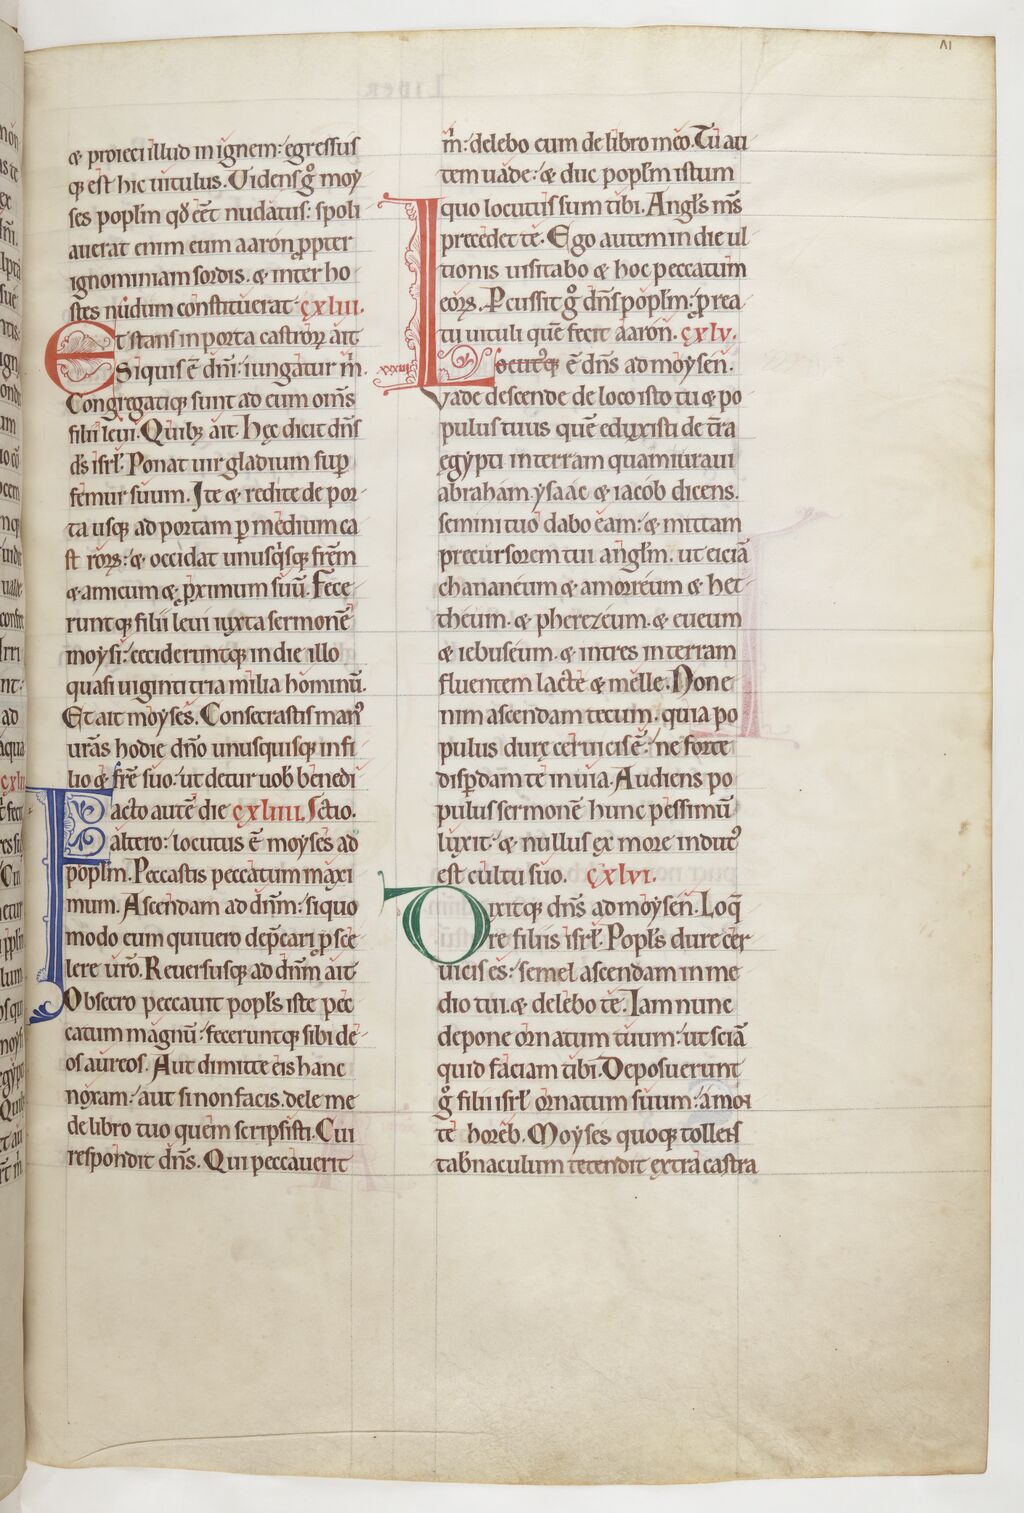 & proieci illud in ignem: egressus
q; est hic uitulus. Uidens g̊ moy
ses popl̄m qđ eēt nudatus: spoli
auerat enim eum aaron ꝓpter
ignominiam sordis. & inter ho-
stes nudum constituerat. cxliii.
Et stans in porta castroꝝ ait
Siquis ē dn̄i: iungatur m̄.
Congregatiq; sunt ad eum om̄s
filii leui. Quibꝫ ait. Hęc dicit dn̄s
d̄s isrl̄. Ponat uir gladium sup̄
femur suum. Ite & redite de por-
ta usq; ad portam ꝑ medium ca
stroꝝ: & occidat unusq̇sq; fr̄em
& amicum & ꝓximum suū. Fece-
runtq; filii leui iuxta sermonē
moysi: cecideruntq; in die illo
quasi uiginti tria milia hominū.
Et ait moyses. Consecrastis man᾿
ur̄as hodie dn̄o unusquisq; in fi-
lio & fr̄e suo: ut detur uob̄ benedi
Facto autē die cxliiii. ctio.
altero: locutus ē moyses ad
popl̄m. Peccastis peccatum maxi
mum. Ascendam ad dn̄m: siquo
modo eum quiuero dep̄cari ꝓ sce
lere ur̄o. Reuersusq; ad dn̄m ait
Obsecro peccauit popl̄s iste pec
catum magnū: feceruntq; sibi de-
os aureos. Aut dimitte eis hanc
noxam: aut si non facis. dele me
de libro tuo quem scripsisti. Cui
respondit dn̄s. Qui peccauerit
VI
m̄: delebo eum de libro meo. Tu au
tem uade: & duc popl̄m istum
quo locutus sum tibi. Angl̄s m̄s
precedet te. Ego autem in die ul-
tionis uisitabo & hoc peccatum
eoꝝ. Percussit g̊ dn̄s popl̄m: ꝓ rea-
tu uituli quē fecit aaron. cxlv.
xxxiii Locutusq; ē dn̄s ad moysen.
Vade descende de loco isto tu & po-
pulus tuus quē eduxisti de t̄ra
egypti in terram quam iuraui
abraham. ysaac & iacob dicens.
semini tuo dabo eam: & mittam
precursorem tui angl̄m. ut eiciā
chananeum & amorreum & het-
theum. & pherezeum. & eueum
& iebuseum. & intres in terram
fluentem lacte & melle. Non e-
nim ascendam tecum. quia po
pulus durę ceruicis ē: ne forte
disꝑdam te in uia. Audiens po
pulus sermonē hunc pessimū
luxit: & nullus ex more indut᾿
est cultu suo. cxlvi.
Dixitq; dn̄s ad moysen. Loq̄
re filiis isrl̄. Popl̄s dure cer-
uicis es: semel ascendam in me-
dio tui. & delebo te. Iam nunc
depone ornatum tuum: ut sciā
quid faciam tibi. Deposuerunt
g̊ filii isrl̄ ornatum suum: a mon
te horeb. Moyses quoq; tollens
tab̄naculum tetendit extra castra